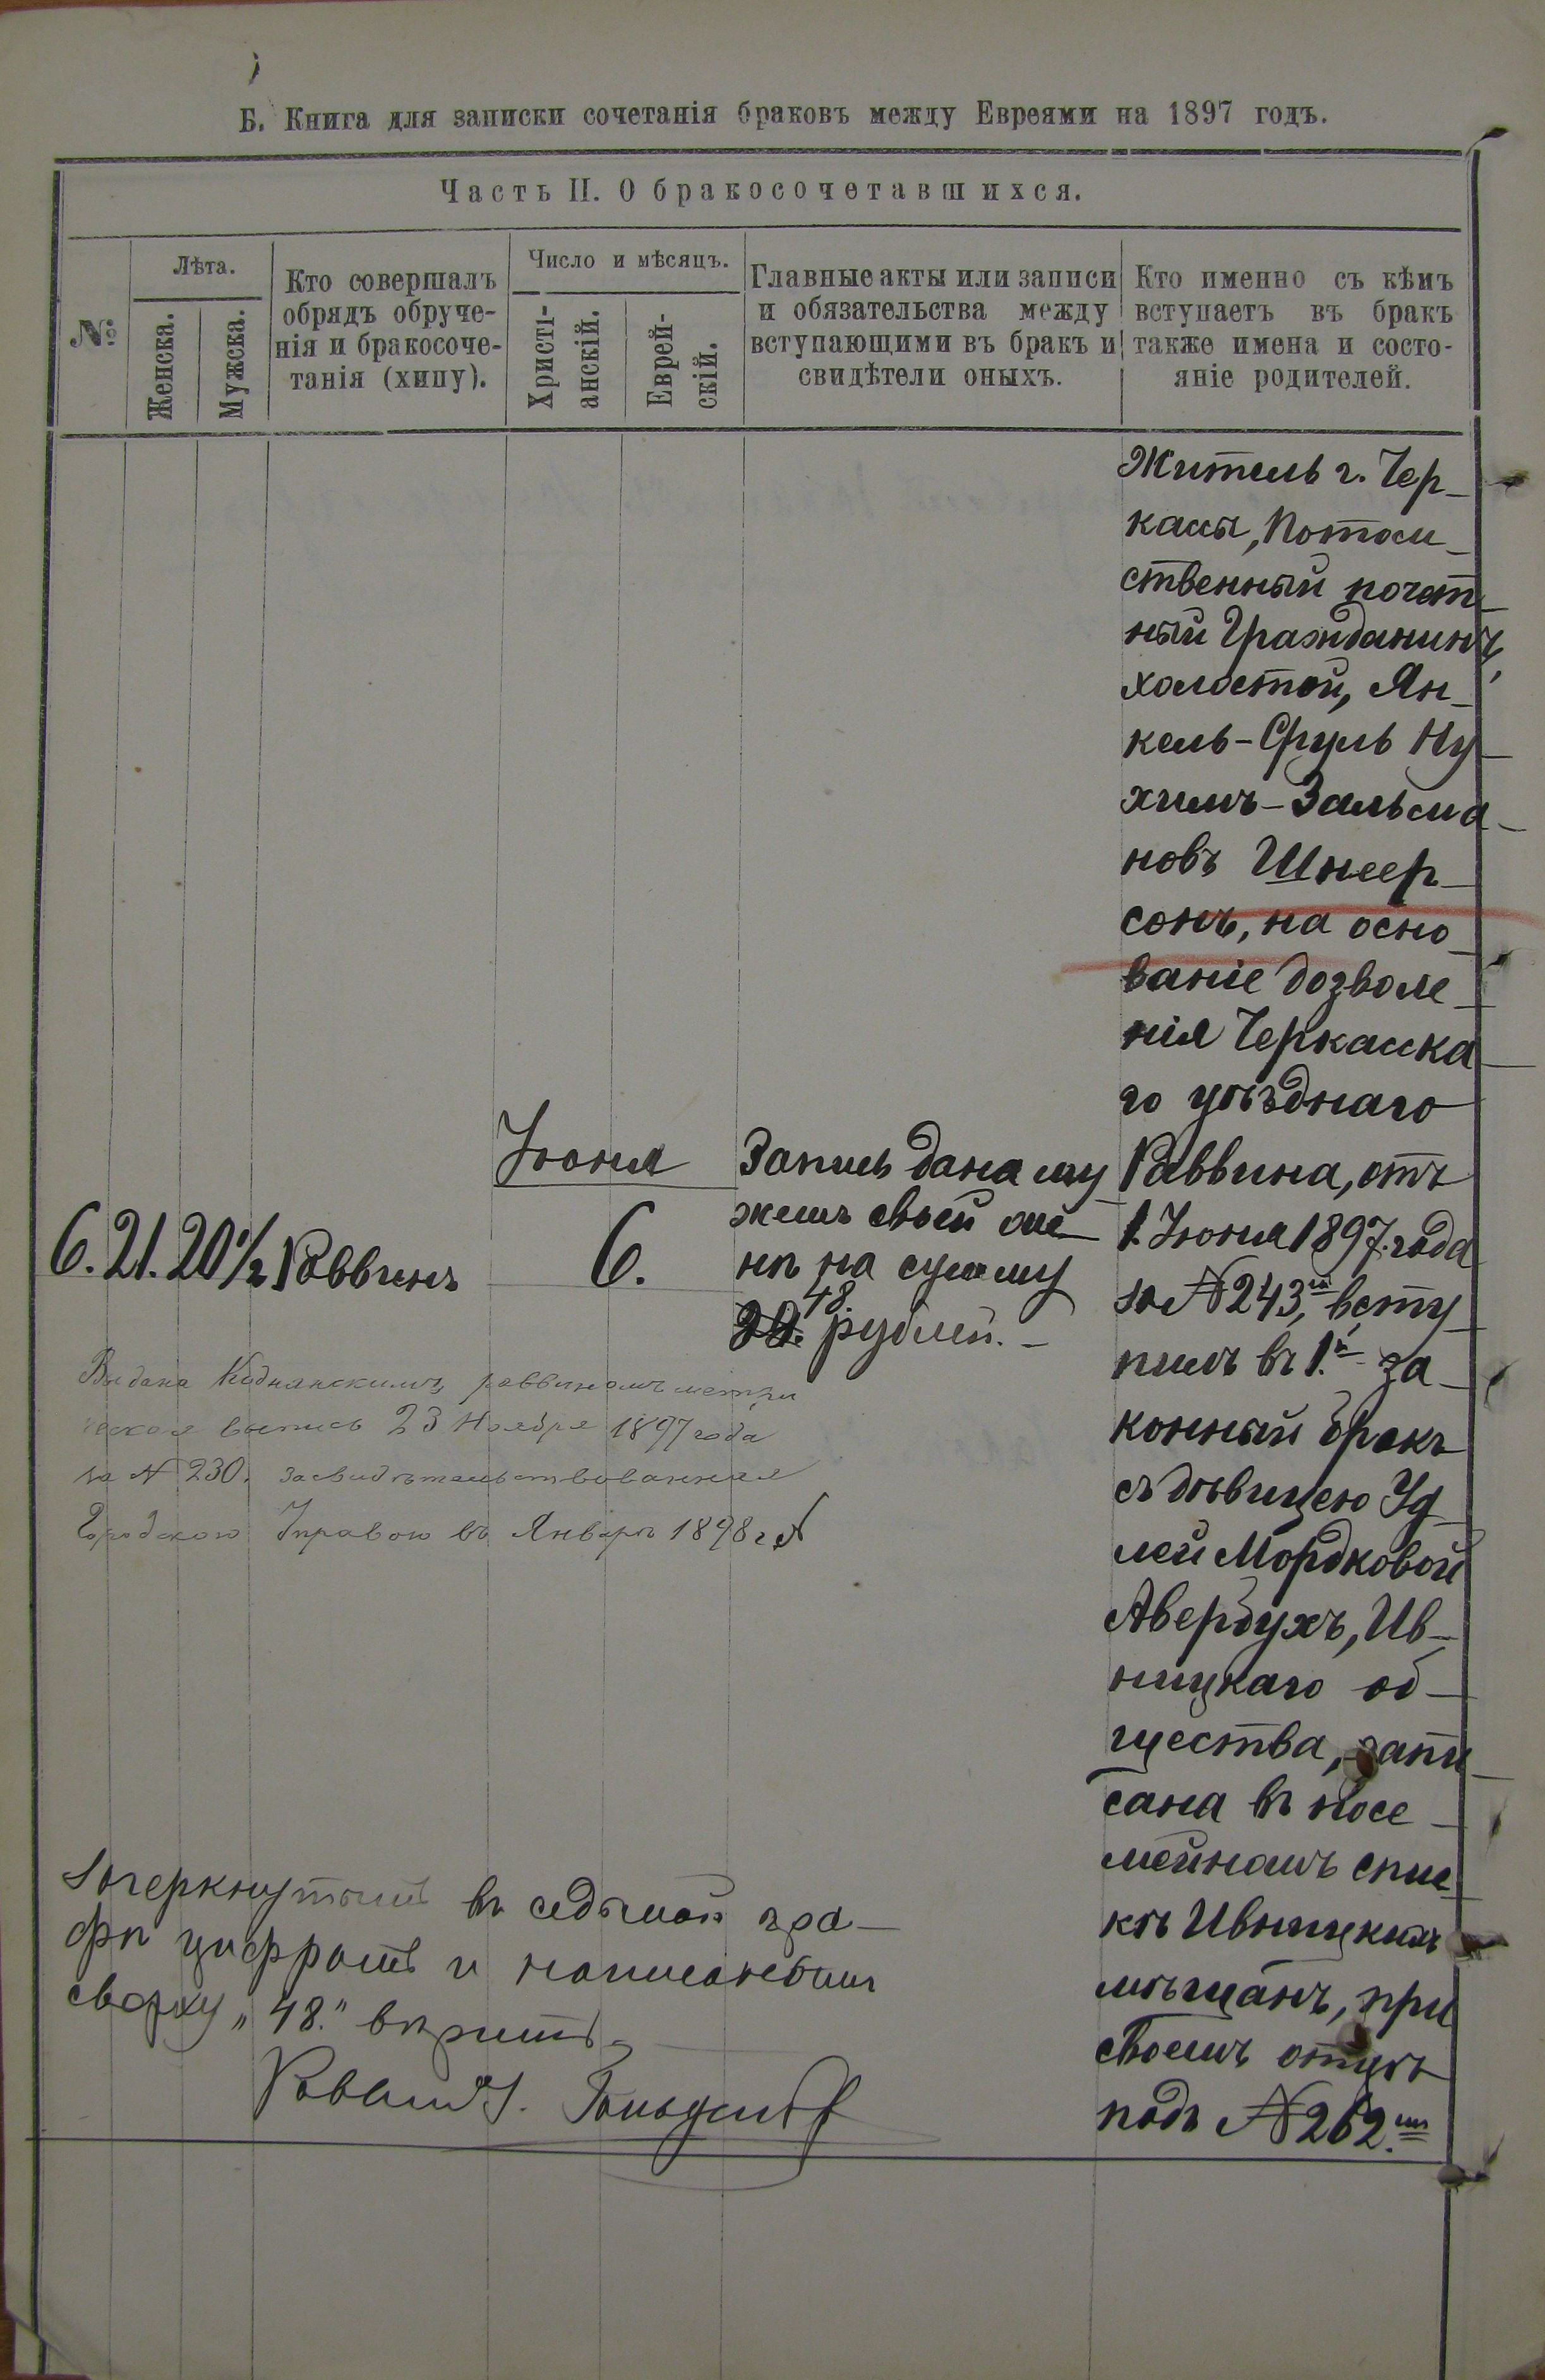 Б. Книга для записки сочетанія браковъ между Евреями на 1897 годъ.
Часть II. О бракосочетавшихся.
№
Лѣта.
Женска.
Мужска.
Кто совершалъ
обрядъ обруче-
нія и бракосоче-
танія (хипу).
Число и мѣсяцъ.
Христі-
анскій.
Еврей-
скій.
Главные акты или записи
и обязательства между
вступающими въ бракъ и
свидѣтели оныхъ.
Кто именно съ кѣмъ
вступаетъ въ бракъ
также имена и состо-
яніе родителей.
6. 21. 20½ Раввинъ
Іюня
6.
Запись дана му
жемъ своей же-
нѣ на сумму
48.
рублей. -
Житель г. Чер-
кассы, Потом-
ственный почет-
ный Гражданинъ,
холостой, Ян-
кель-Сруль Ну-
химъ-Зальма-
новъ Шнеер-
сонъ, на осно-
ваніе дозволе-
нія Черкасска-
го уѣзднаго
Раввина, отъ
1. Іюня 1897. года
за № 243, всту-
пилъ въ 1.й за-
конный бракъ
съ дѣвицею Уд-
лей Мордковой
Авербухъ, Ив-
ницкаго об-
щества, запи-
сана въ посе-
мейномъ спис-
кѣ Ивницкихъ
мѣщанъ, при
своемъ отцѣ
подъ № 262.мъ
Выдана Коднянскимъ раввиномъ метри
ческая выпись 23 Ноября 1897 года
за № 230. засвидѣтельствованная
Городскою Управою въ Январѣ 1898 г. №
Зачеркнутымъ въ седьмой гра-
фѣ цифрамъ и написаннымъ
сверху „48.“ вѣрить.
Раввинъ